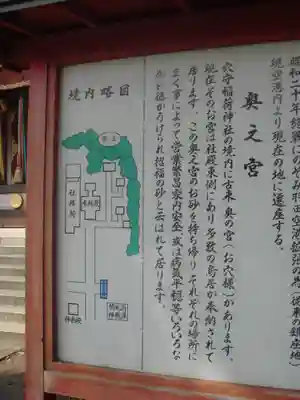 境内略図
奥之宮
社務所
神楽殿
奥之宮
昭和二十年終戦により
現空港内より現在の地に遷座する。
穴守稲荷神社の境内に古来 奥の宮(お穴様)があります。
現在そのお宮は社殿東側にあり多数の鳥居が奉納されて
居ります この奥之宮のお砂を持ち帰り それぞれの場所に
まく事によって 営業繁昌家内安全 或は病気平穏等いろいろな
と云はれて居ります。
招福の砂